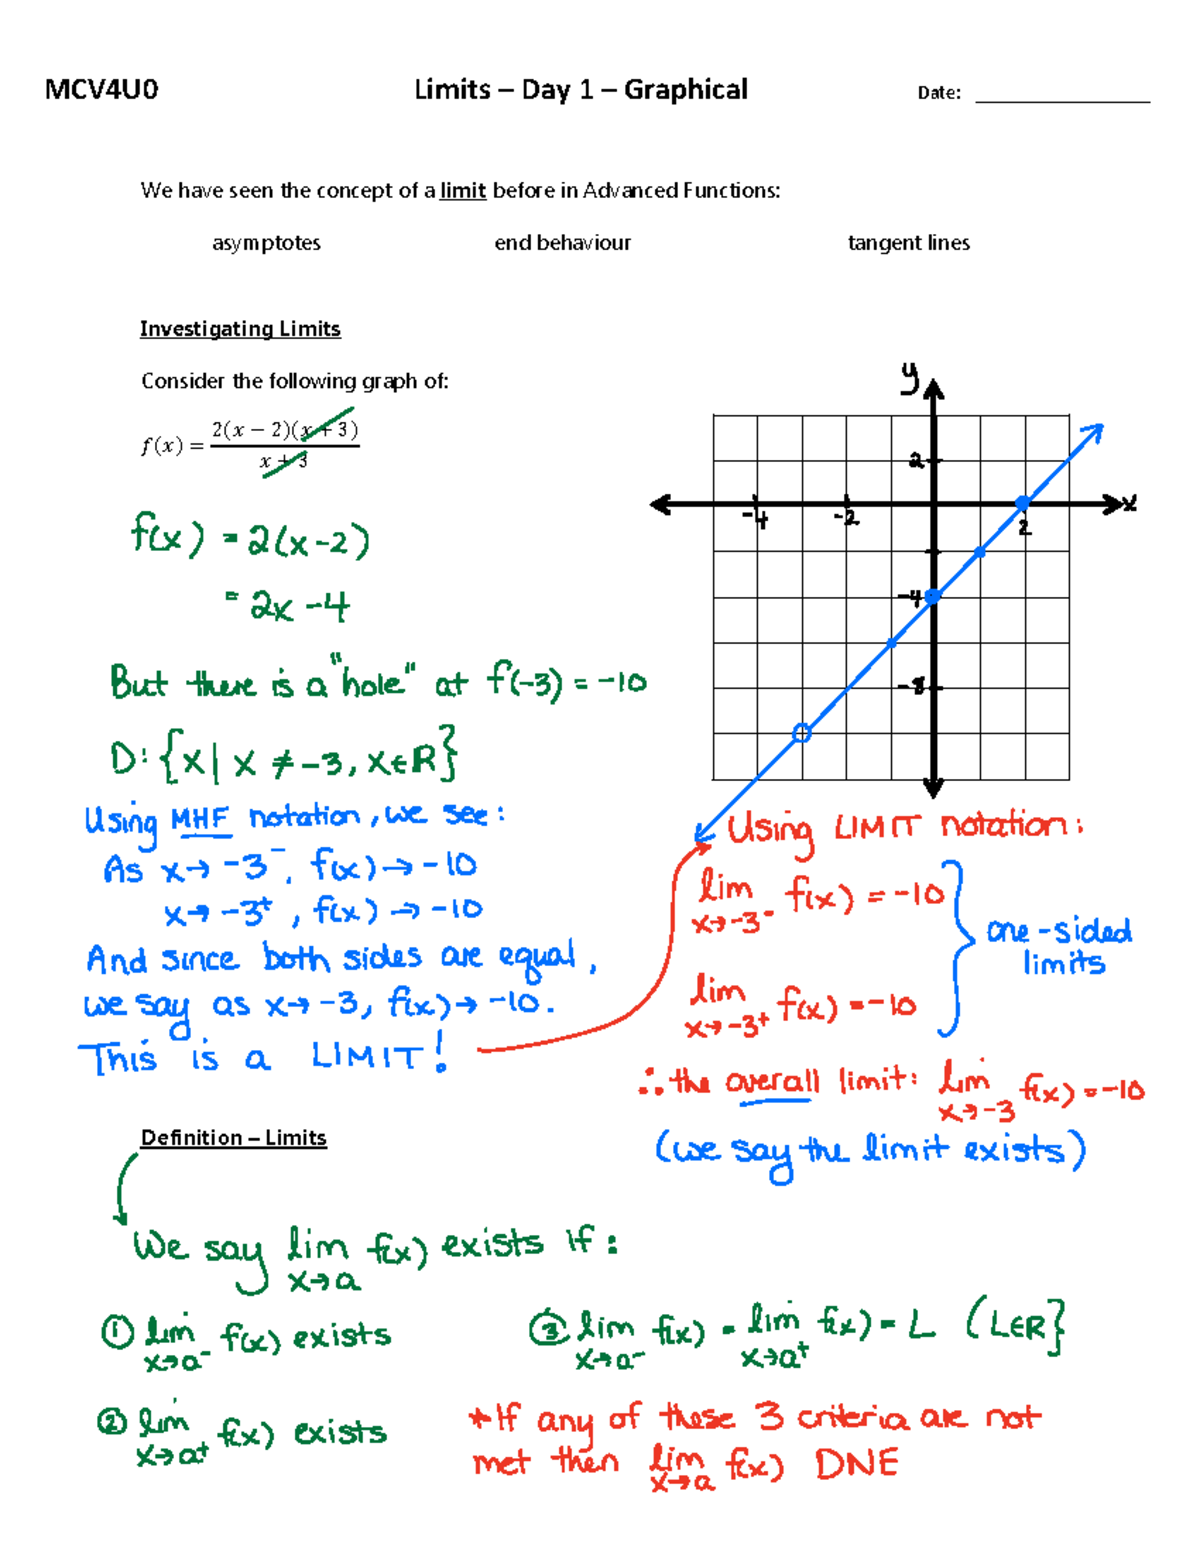 MCV4U0 Limits – Day 1 – Graphical Date: ___________________
We have seen the concept of a limit before in Advanced Functions:
asymptotes end behaviour tangent lines
Investigating Limits
Consider the following graph of:
f(x) = 2(x − 2)(x + 3) / x + 3
f(x) = 2(x-2)
= 2x -4
But there is a "hole" at f(-3) = -10
D: {x | x ≠ -3, x∈R}
y
2
-4 -2 2 x
-4
-8
Using MHF notation, we see:
As x→ -3⁻, f(x) → -10
x→ -3⁺, f(x) → -10
And since both sides are equal,
we say as x→ -3, f(x) → -10.
This is a LIMIT!
Using LIMIT notation:
lim f(x) = -10
x→-3⁻
lim f(x) = -10
x→-3⁺
one-sided
limits
∴ the overall limit: lim f(x) = -10
x→-3
(we say the limit exists)
Definition – Limits
We say lim f(x) exists if:
x→a
① lim f(x) exists
x→a⁻
② lim f(x) exists
x→a⁺
③ lim f(x) = lim f(x) = L (L∈R}
x→a⁻ x→a⁺
*If any of these 3 criteria are not
met then lim f(x) DNE
x→a